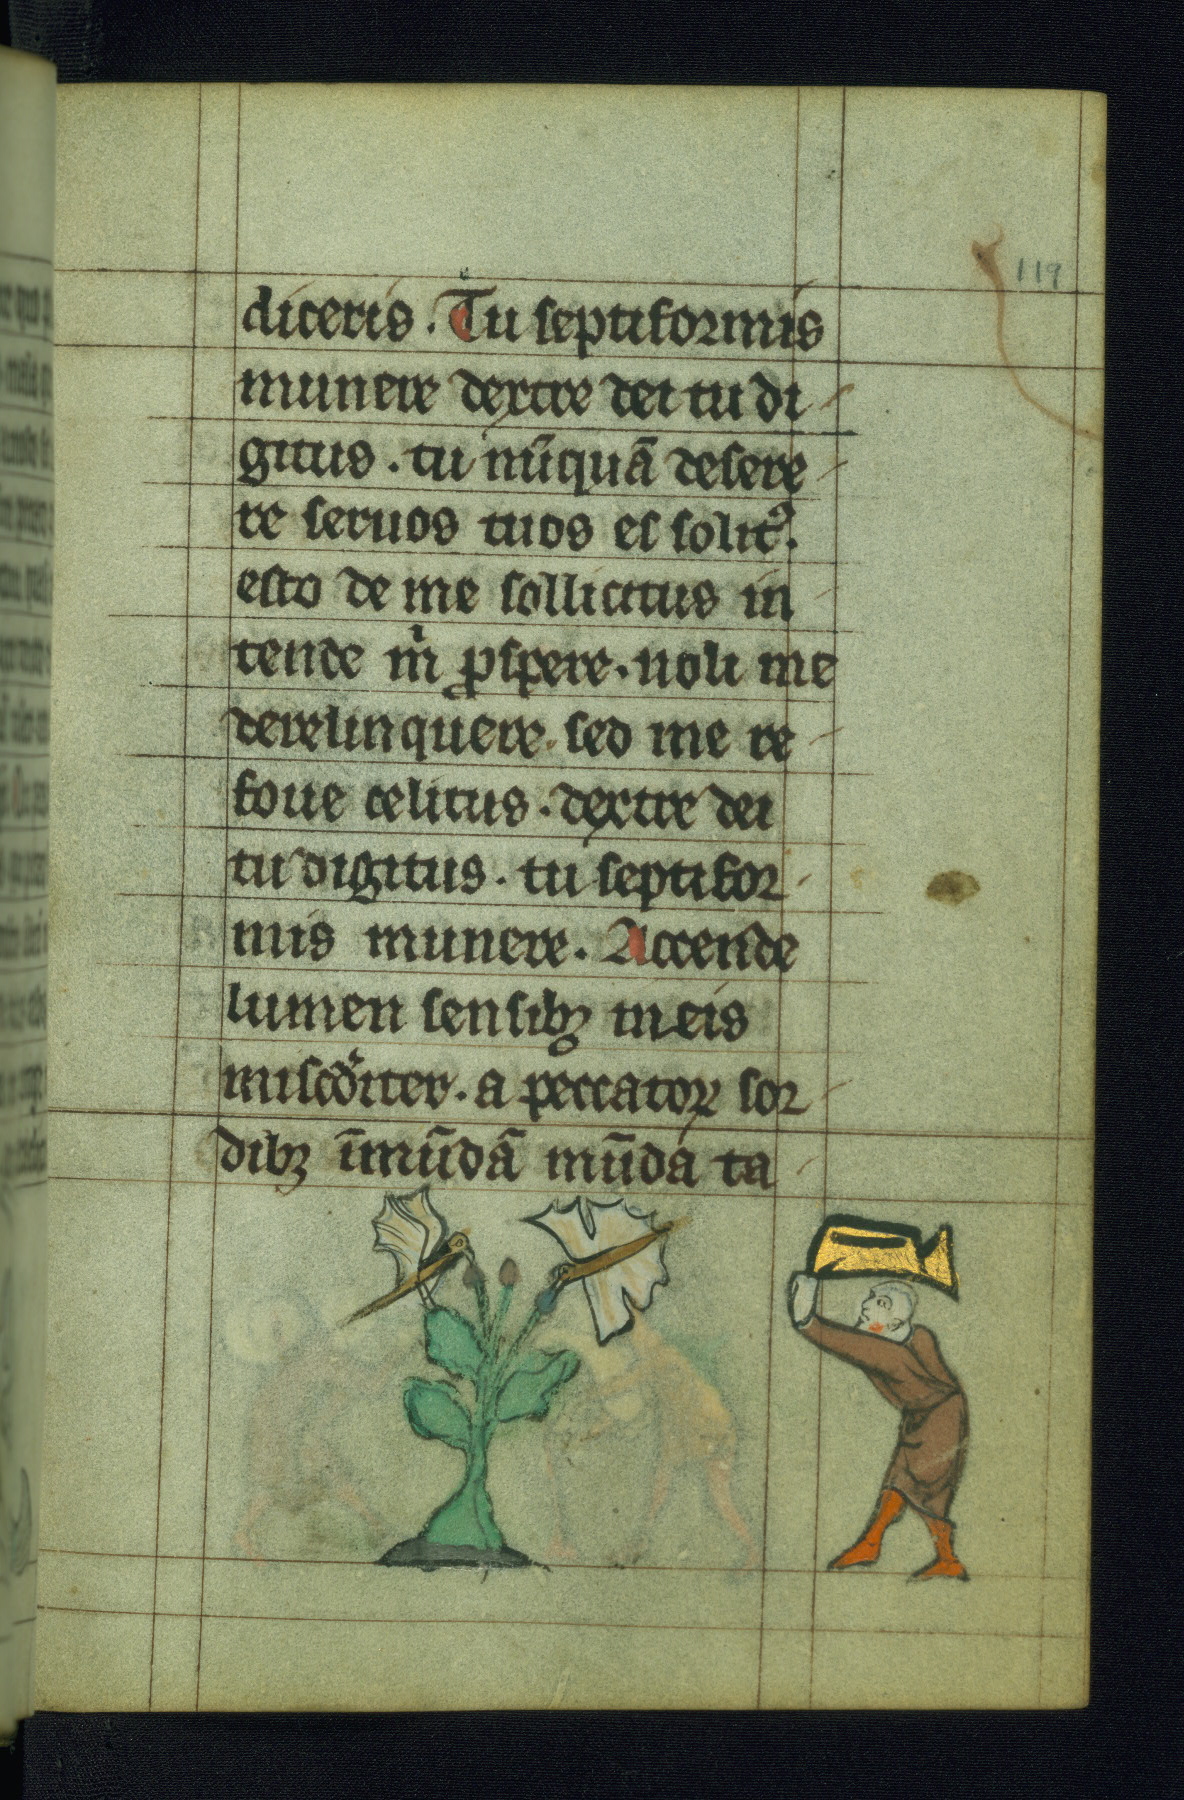 119
diceris . Tu septiformis
munere dextre dei tu di
gitus . tu nūquā desere
re seruos tuos es solitꝰ .
esto de me sollicitus in
tende m̍ ꝓspere . noli me
derelinquere . sed me re
foue celitus . dextre dei
tu digitus . tu septifor
mis munere . Accende
lumen sensibꝫ meis
misc̄d̓iter . a peccatoꝝ sor
dibꝫ īmūdā mūda ta